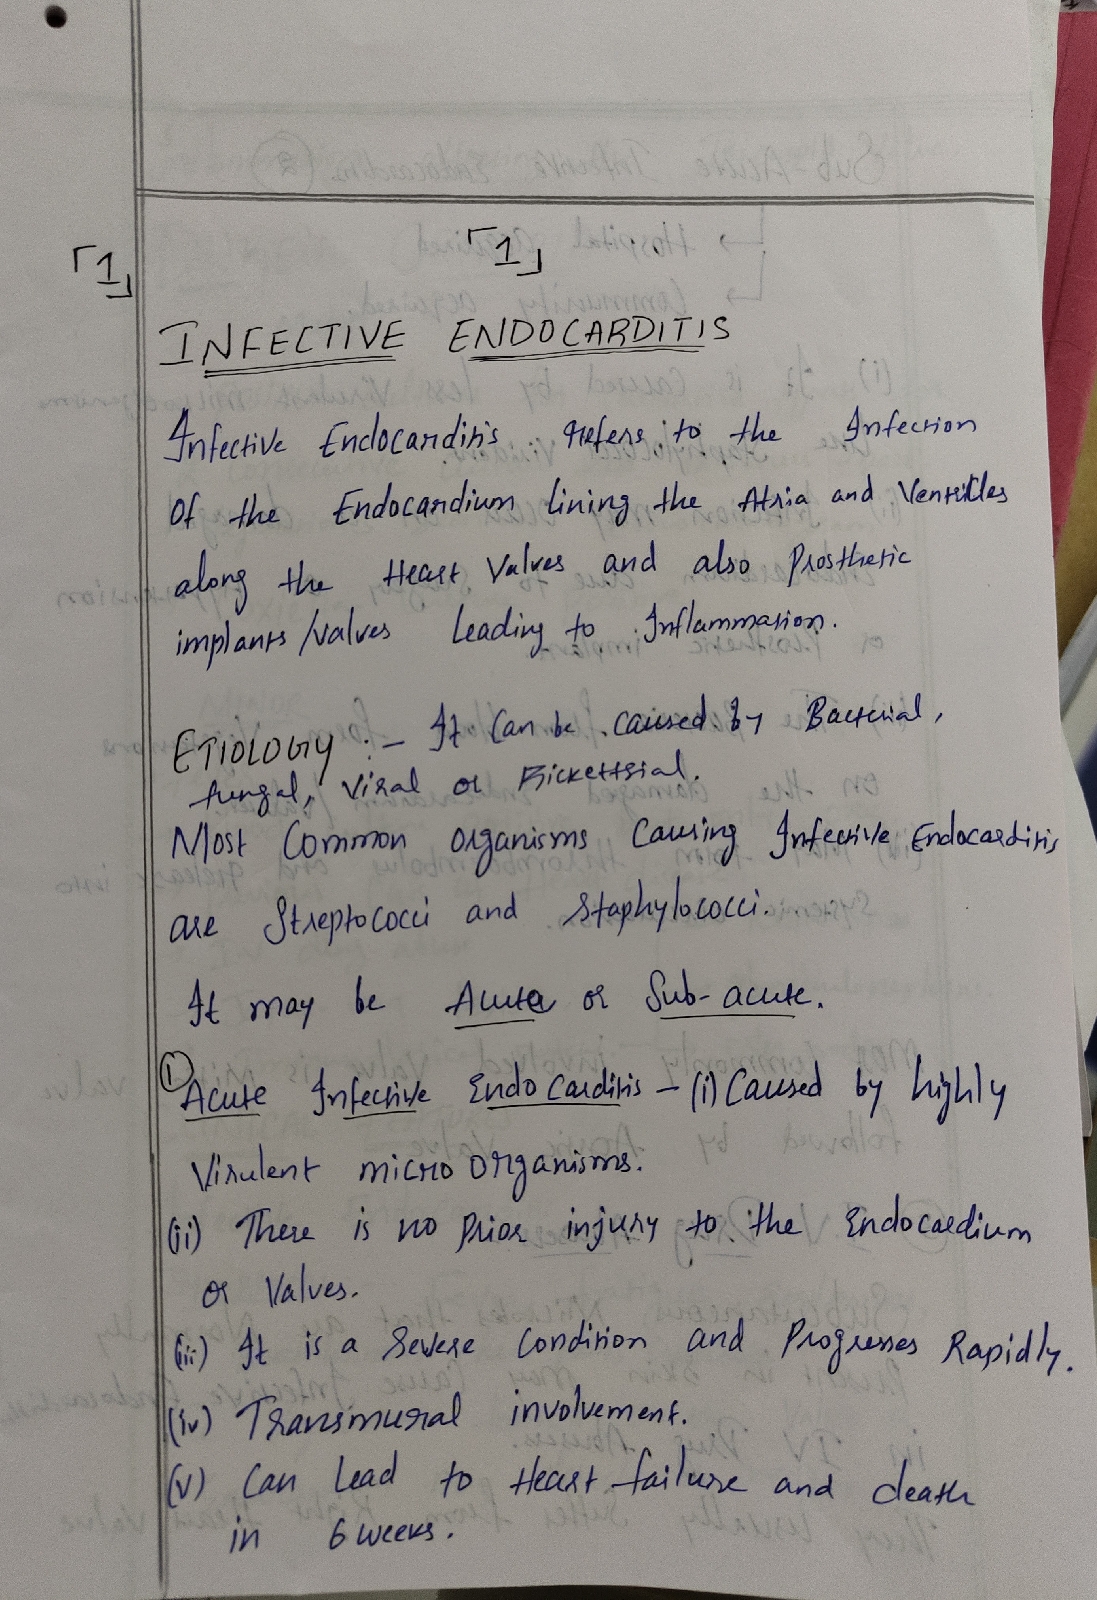 「1」 「1」
INFECTIVE ENDOCARDITIS
Infective Endocarditis refers to the Infection
Of the Endocardium lining the Atria and Ventricles
along the Heart Valves and also Prosthetic
implants/valves leading to Inflammation.
ETIOLOGY :- It Can be caused by Bacterial,
fungal, Viral or Rickettsial.
Most Common organisms Causing Infective Endocarditis
are Streptococci and Staphylococci.
It may be Acute or Sub-acute.
① Acute Infective Endocarditis - (i) Caused by highly
Virulent micro organisms.
(ii) There is no Prior injury to the Endocardium
or Valves.
(iii) It is a Severe Condition and Progresses Rapidly.
(iv) Transmural involvement.
(v) Can Lead to Heart failure and death
in 6 weeks.